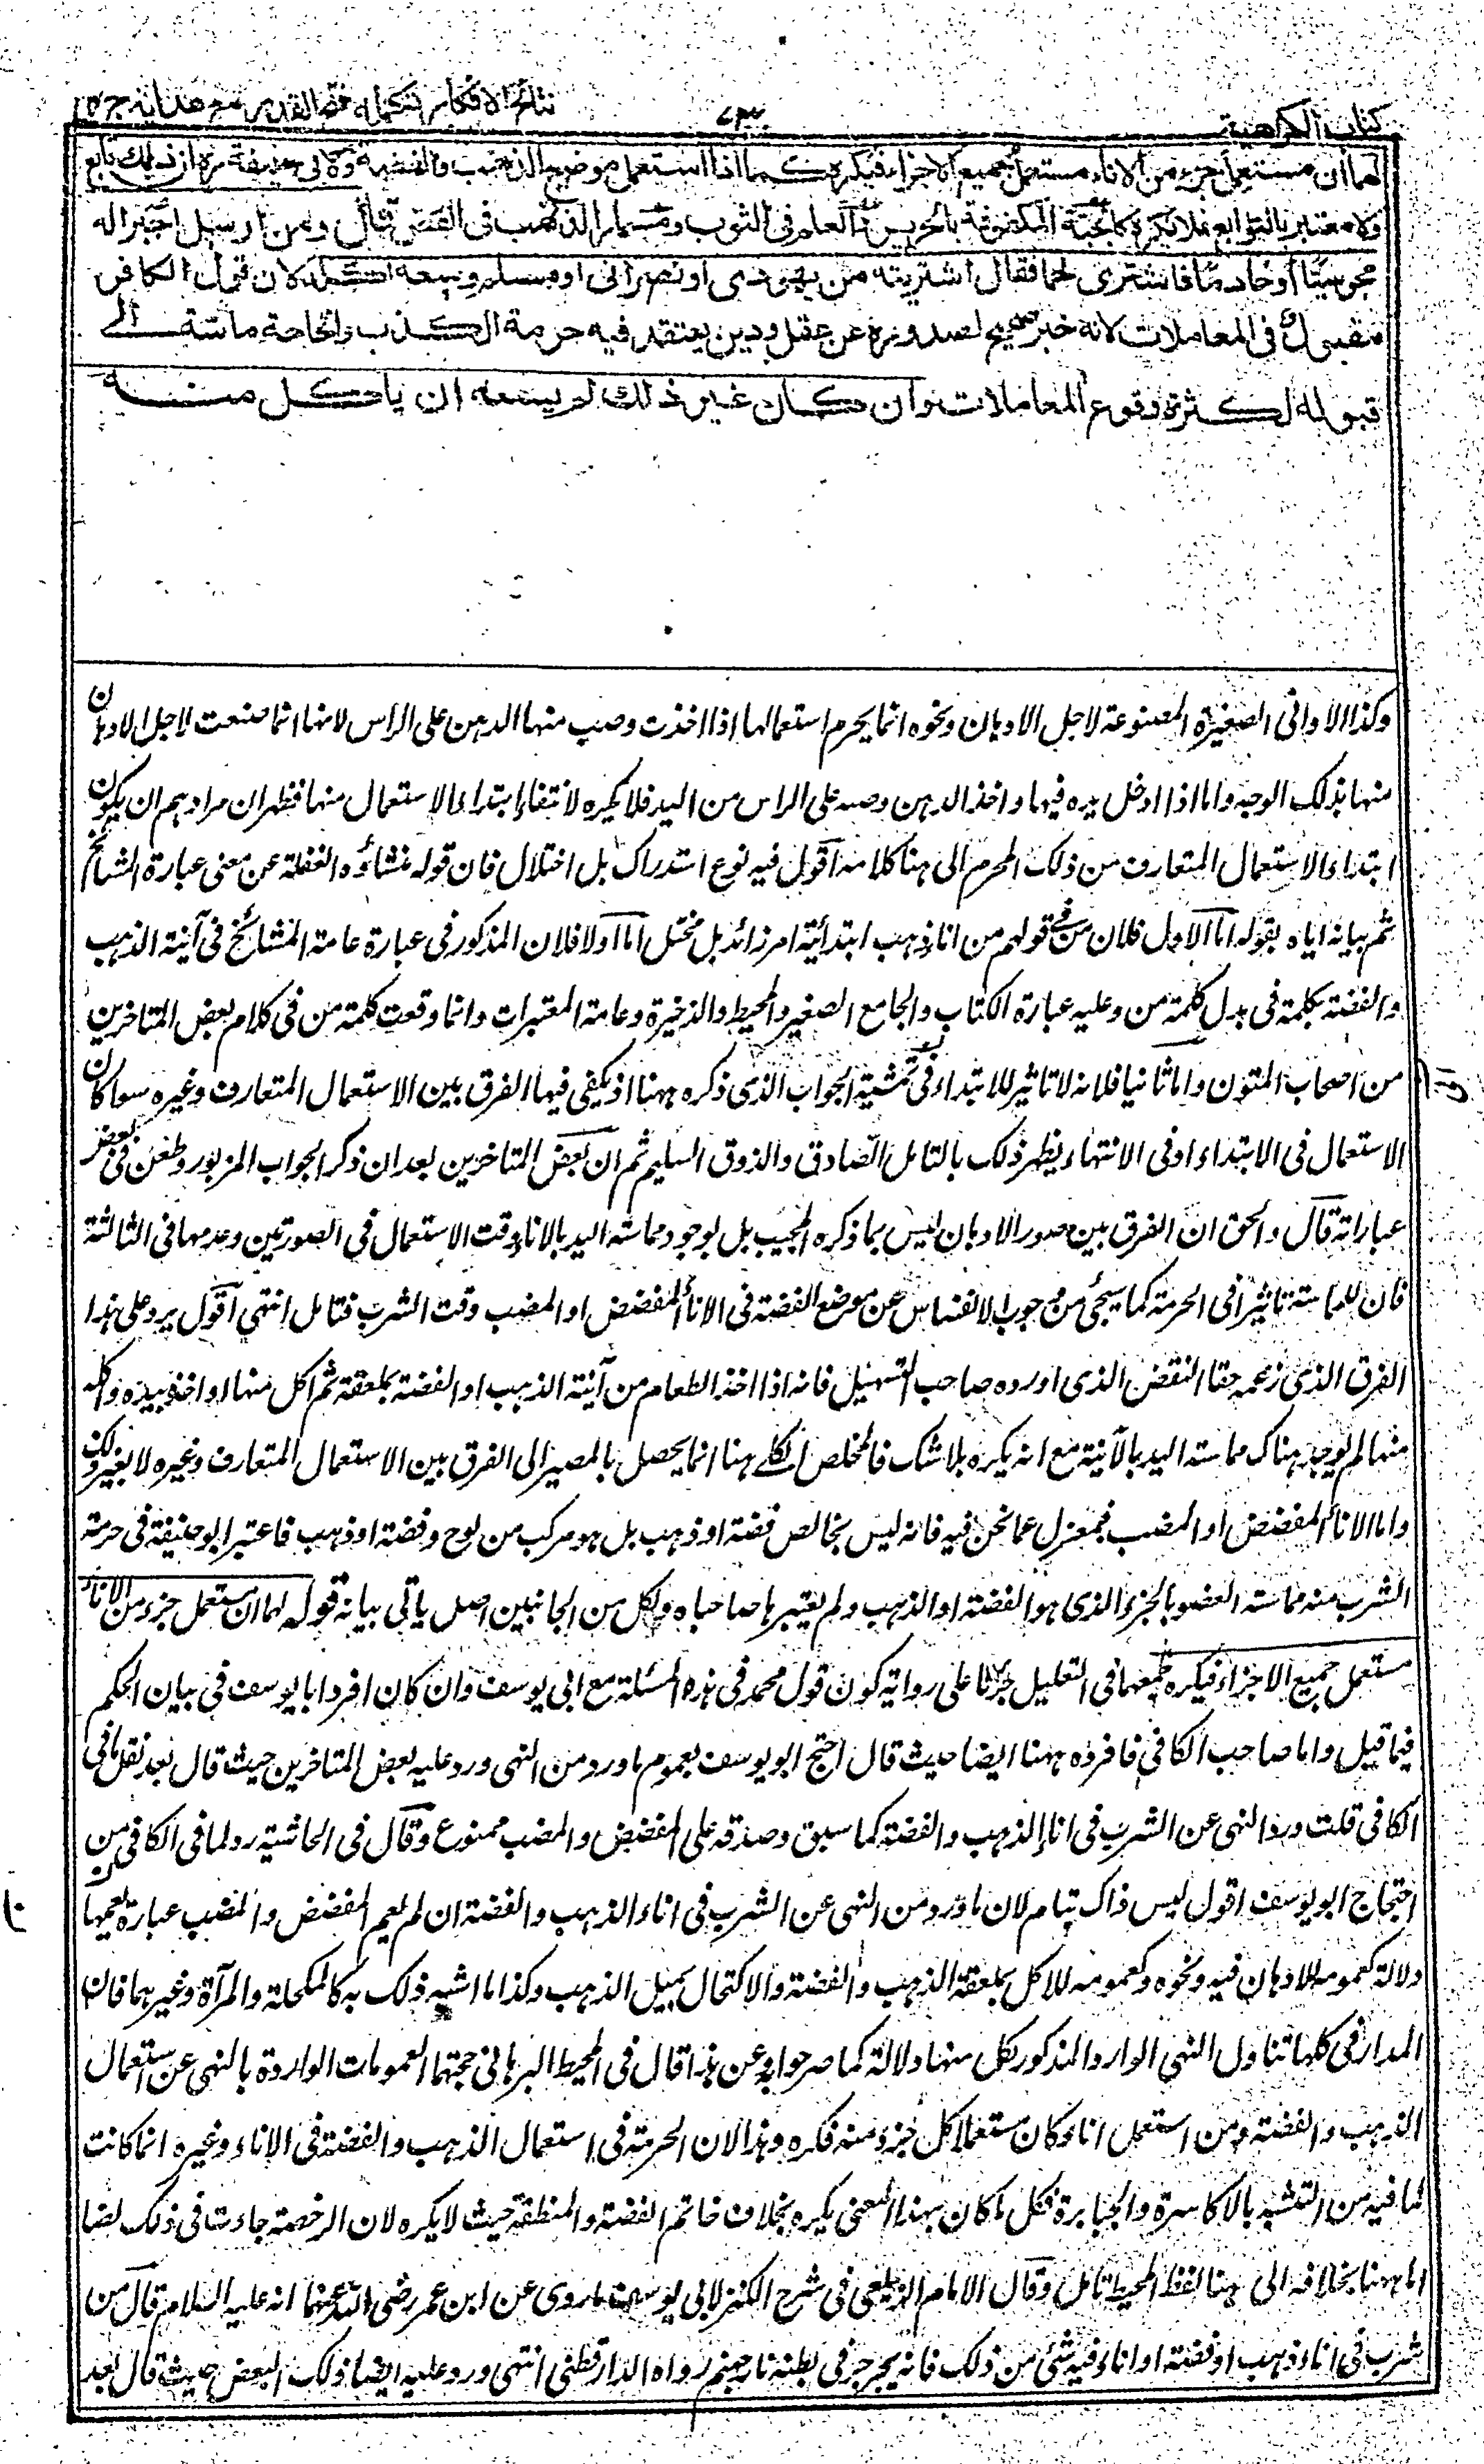 كتاب الكراهية
نتائج الافكار تكملة فتح القدير مع هداية ج
لهما ان مستعمل جزء من الاناء مستعمل جميع الاجزاء فيكره كما اذا استعمل موضع الذهب والفضة ولابي حنيفة ره ان ذلك تابع
ولا معتبر بالتوابع فلا يكره كالجبة المكفوفة بالحرير والعلم في الثوب ومسمار الذهب في الفص قال ومن ارسل اجيرا له
مجوسيا او خادما فاشترى لحما فقال اشتريته من يهودي او نصراني او مسلم وسعه اكله لان قول الكافر
مقبول في المعاملات لانه خبر صحيح لصدوره عن عقل ودين يعتقد فيه حرمة الكذب والحاجة ماسة الى
قبوله لكثرة وقوع المعاملات وان كان غير ذلك لم يسعه ان ياكل منه
وكذا الاواني الصغيرة المصنوعة لاجل الادهان ونحوه انما يحرم استعمالها اذا اخذت وصب منها الدهن على الراس لانها انما صنعت لاجل الادهان
منها بذلك الوجه واما اذا ادخل يده فيها واخذ الدهن وصبه على الراس من اليد فلا يكره لانتفاء ابتداء الاستعمال منها فظهر ان مرادهم ان يكون
ابتداء الاستعمال المتعارف من ذلك المحرم الى هنا كلامه اقول فيه نوع استدراك بل اختلال فان قوله منشاؤه الغفلة عن معنى عبارة المشائخ
ثم بيانه اياه بقوله اما الاول فلان من في قولهم من اناء ذهب ابتدائية امر زائد بل مختل اما اولا فلان المذكور في عبارة عامة المشائخ في آنية الذهب
والفضة بكلمة في بدل كلمة من وعليه عبارة الكتاب والجامع الصغير والمحيط والذخيرة وعامة المعتبرات وانما وقعت كلمة من في كلام بعض المتاخرين
من اصحاب المتون واما ثانيا فلانه لا تاثير للابتداء في تمشية الجواب الذي ذكره ههنا اذ يكفي فيها الفرق بين الاستعمال المتعارف وغيره سواء كان
الاستعمال في الابتداء او في الانتهاء يظهر ذلك بالتامل الصادق والذوق السليم ثم ان بعض المتاخرين بعد ان ذكر الجواب المزبور وطعن في بعض
عباراته قال والحق ان الفرق بين صور الادهان ليس بما ذكره المجيب بل بوجود مماسة اليد بالاناء وقت الاستعمال في الصورتين وعدمها في الثالثة
فان للمماسة تاثيرا في الحرمة كما سيجئ من وجوب الاتقاء عن موضع الفضة في الاناء المفضض او المضبب وقت الشرب فتامل انتهى اقول يرد على هذا
الفرق الذي زعمه حقا النقض الذي اورده صاحب التسهيل فانه اذا اخذ الطعام من آنية الذهب او الفضة بملعقة ثم اكل منها او اخذه بيده واكله
منها لم يوجد هناك مماسة اليد بالآنية مع انه يكره بلا شك فالمخلص الكلي ههنا انما يحصل بالمصير الى الفرق بين الاستعمال المتعارف وغيره لا بغير ذلك
واما الاناء المفضض او المضبب فبمعزل عما نحن فيه فانه ليس بخالص فضة او ذهب بل هو مركب من لوح وفضة او ذهب فاعتبر ابو حنيفة في حرمة
الشرب منه مماسة العضو بالجزء الذي هو الفضة او الذهب ولم يعتبرها صاحباه ولكل من الجانبين اصل ياتي بيانه قوله لهما ان مستعمل جزء من الاناء
مستعمل جميع الاجزاء فيكره جمعهما في التعليل جريا على رواية كون قول محمد في هذه المسئلة مع ابي يوسف وان كان افرد ابا يوسف في بيان الحكم
فيما قيل واما صاحب الكافي فافرده ههنا ايضا حيث قال احتج ابو يوسف بعموم ما ورد من النهي ورد عليه بعض المتاخرين حيث قال بعد نقل ما في
الكافي قلت ورد النهي عن الشرب في اناء الذهب والفضة كما سبق وصدقه على المفضض والمضبب ممنوع وقال في الحاشية رد لما في الكافي من
احتجاج ابو يوسف اقول ليس ذاك بتام لان ما ورد من النهي عن الشرب في اناء الذهب والفضة ان لم يعم المفضض والمضبب عبارة يعمها
دلالة كعمومه للادهان فيه ونحوه وكعمومه للاكل بملعقة الذهب والفضة والاكتحال بميل الذهب وكذا ما اشبه ذلك كالمكحلة والمرآة وغيرهما فان
المدار في كلها تناول النهي الوارد المذكور لكل منها دلالة كما صرحوا به وعن هذا قال في المحيط البرهاني حجتهما العمومات الواردة بالنهي عن استعمال
الذهب والفضة ومن استعمل اناء كان مستعملا كل جزء منه فكره وهذا لان الحرمة في استعمال الذهب والفضة في الاناء وغيره انما كانت
لما فيه من التشبه بالاكاسرة والجبابرة فكل ما كان بهذا المعنى يكره بخلاف خاتم الفضة والمنطقة حيث لا يكره لان الرخصة جاءت في ذلك نصا
اما ههنا بخلافه الى هنا لفظ المحيط تامل وقال الامام الزيلعي في شرح الكنز لابي يوسف ما روى عن ابن عمر رضي الله عنهما انه عليه السلام قال من
شرب في اناء ذهب او فضة او اناء فيه شئ من ذلك فانه يجرجر في بطنه نار جهنم رواه الدارقطني انتهى ورد عليه ايضا ذلك البعض حيث قال بعد